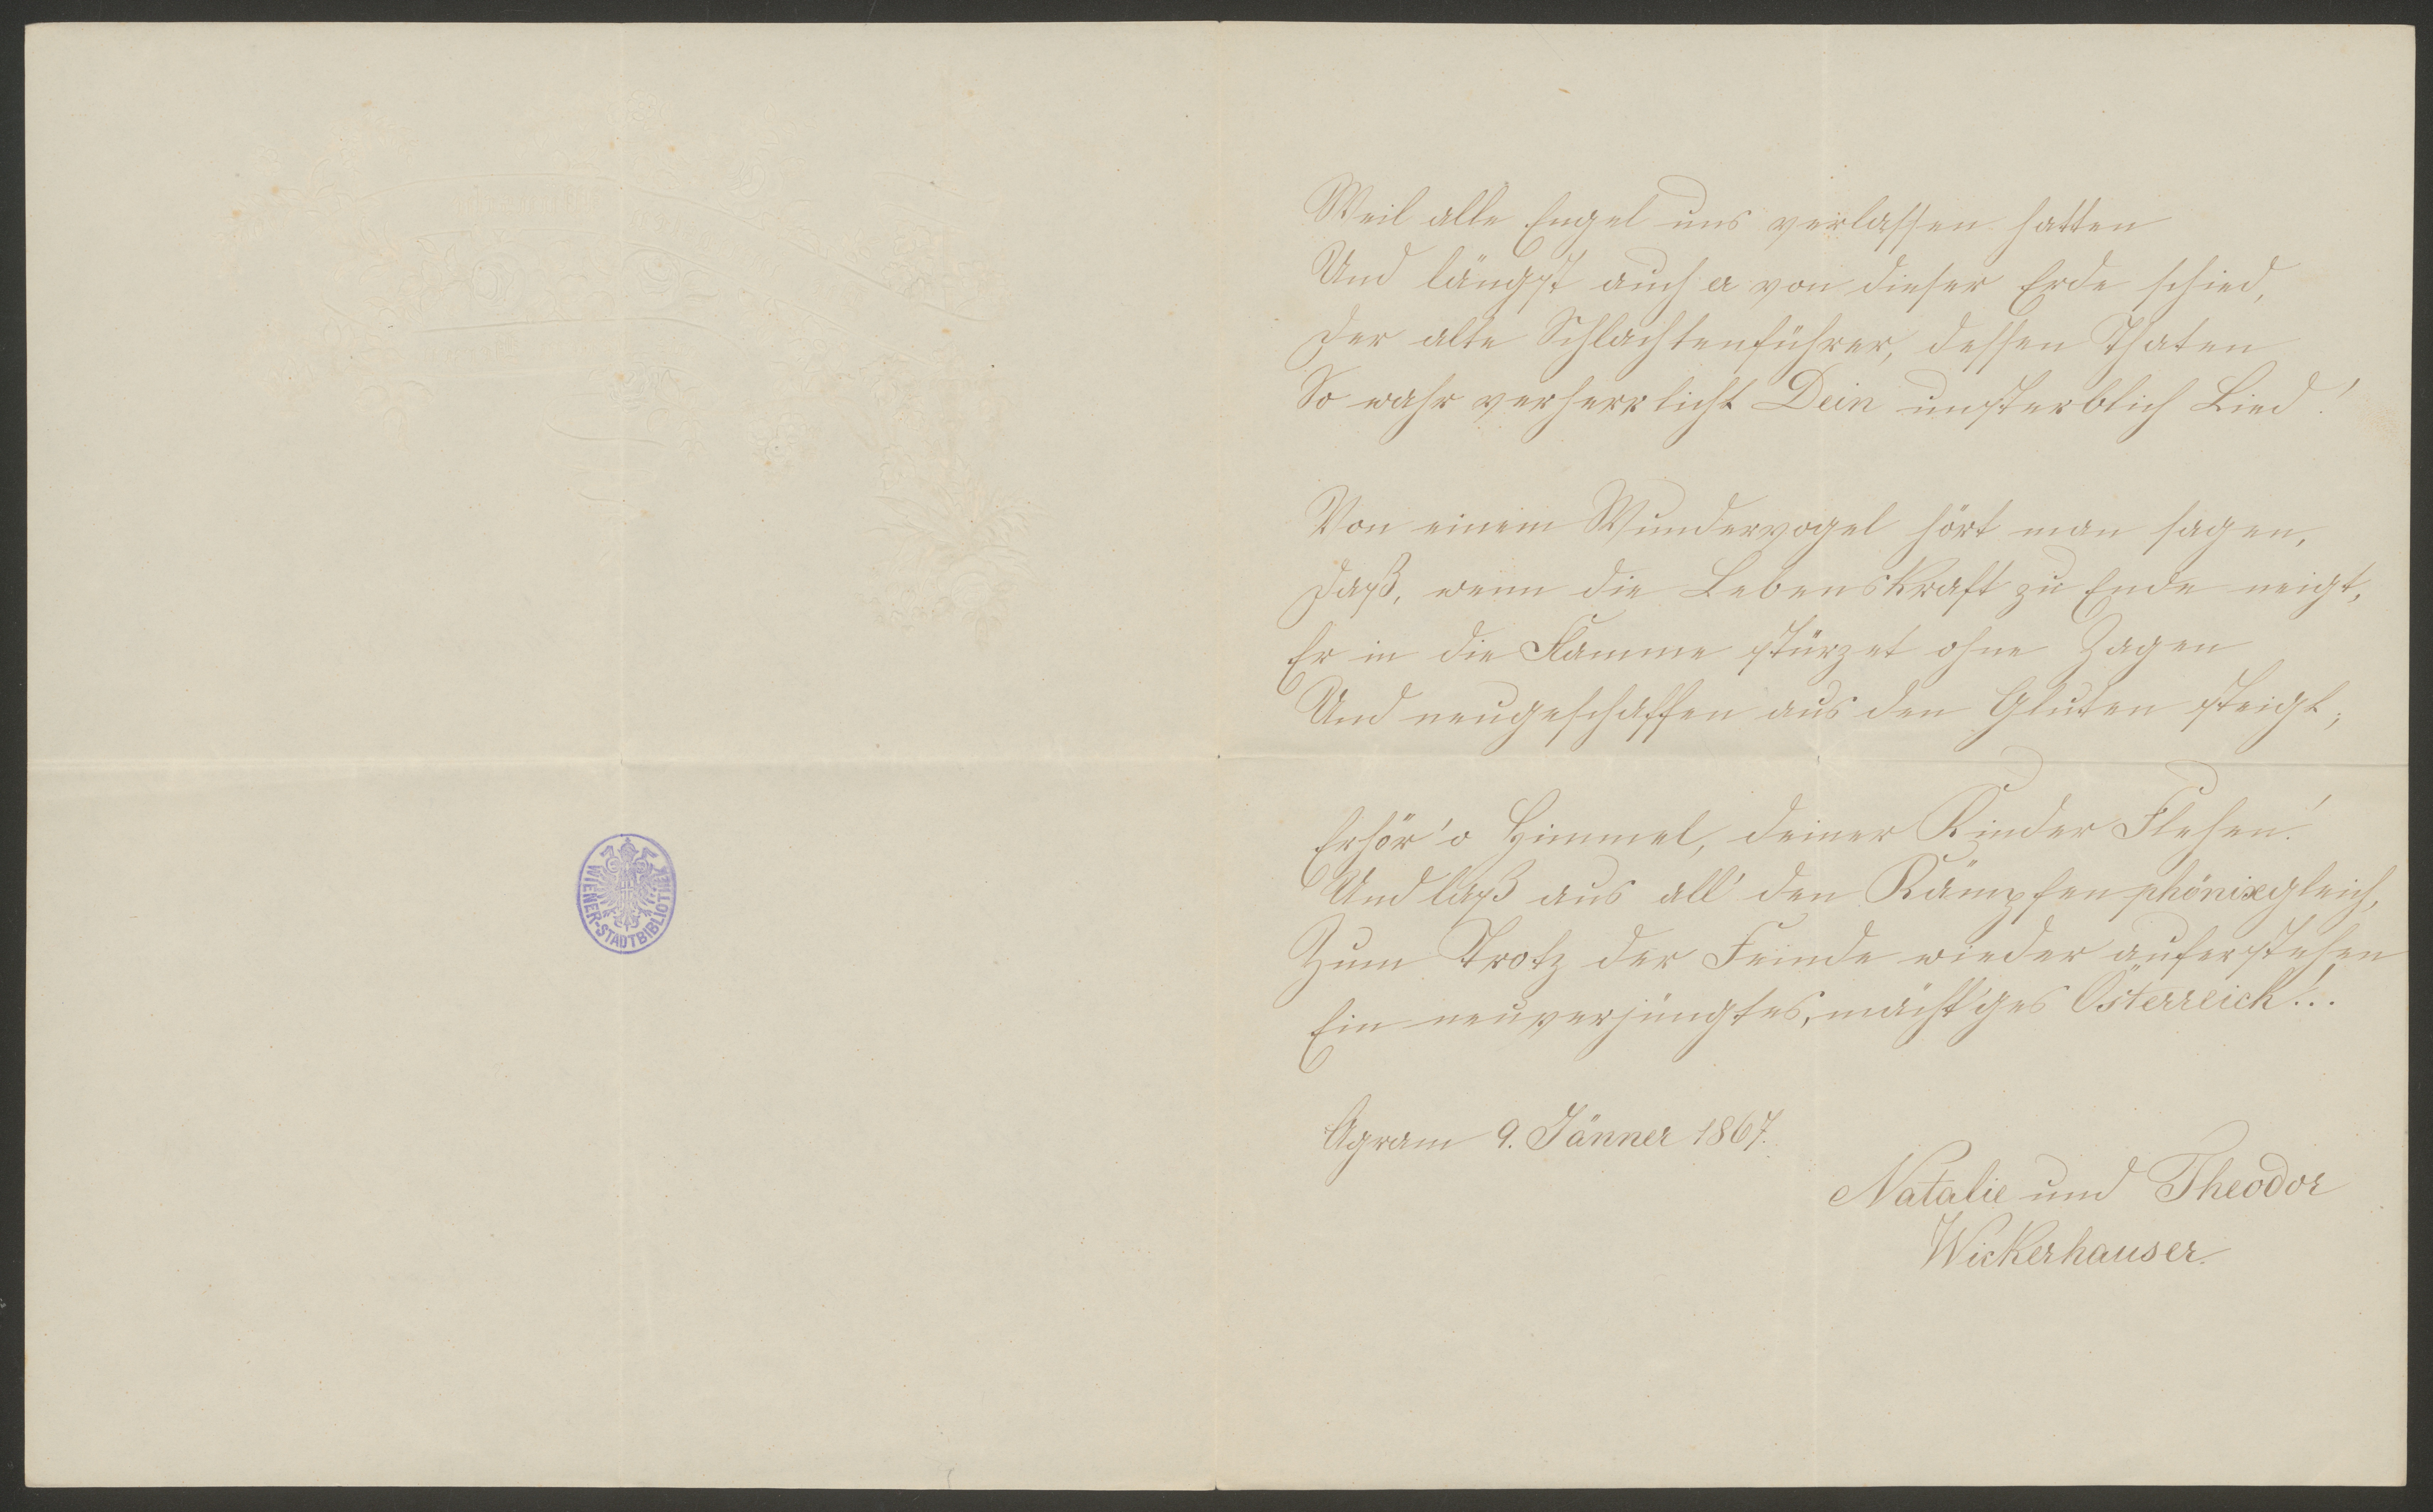 WIENER-STADTBIBLIOTHEK
Weil alle Engel uns verlassen hatten
Und längst auch er von dieser Erde schied,
Der alte Schlachtenführer, dessen Thaten
So wahr verherrlicht Dein unsterblich Lied!
Von einem Wundervogel hört man sagen,
Daß, wenn die Lebenskraft zu Ende neigt,
Er in die Flamme stürzet ohne Zagen
Und neugeschaffen aus den Gluten steigt;
Erhör' o Himmel, deiner Kinder Flehen!
Und laß aus all' den Kämpfen phönixgleich,
Zum Trotz der Feinde wieder auferstehen
Ein neuverjüngtes, mächt'ges Österreich!..
Agram 9. Jänner 1867.
Natalie und Theodor
Wickerhauser.